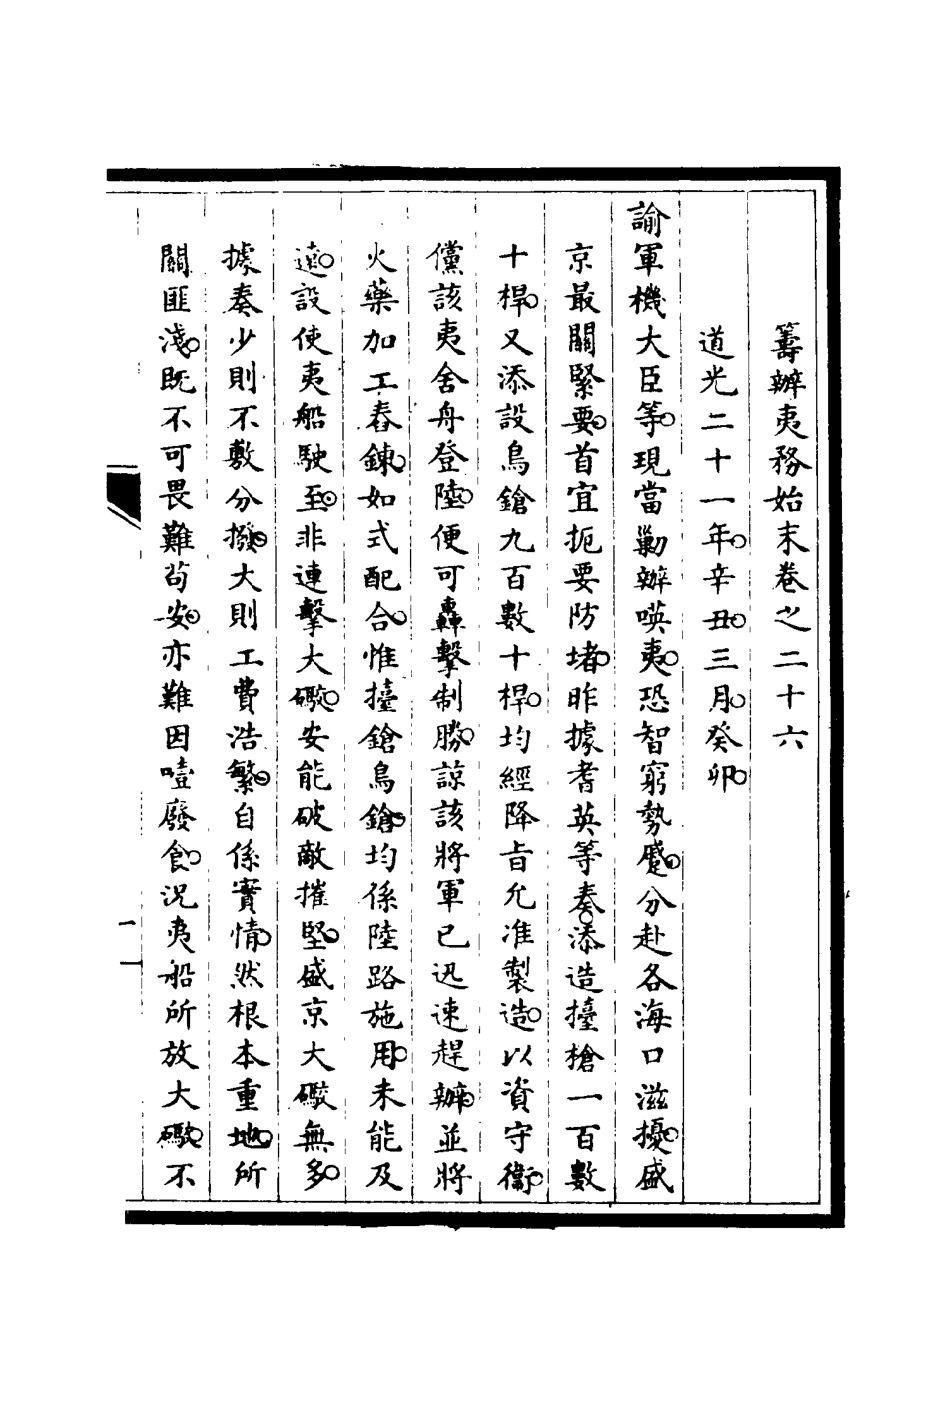 籌辦夷務始末卷之二十六
道光二十一年。辛丑。三月。癸卯。
諭軍機大臣等。現當勦辦㖟夷。恐智窮勢蹙。分赴各海口滋擾。盛
京最關緊要。首宜扼要防堵。昨據耆英等奏。添造擡槍一百數
十桿。又添設鳥鎗九百數十桿。均經降旨允准製造。以資守衞。
儻該夷舍舟登陸。便可轟擊制勝。諒該將軍已迅速趕辦。並將
火藥加工舂鍊。如式配合。惟擡鎗鳥鎗。均係陸路施用。未能及
遠。設使夷船駛至。非連擊大礮。安能破敵摧堅。盛京大礮無多。
據奏少則不敷分撥。大則工費浩繁。自係實情。然根本重地。所
關匪淺。既不可畏難苟安。亦難因噎廢食。況夷船所放大礮。不
一